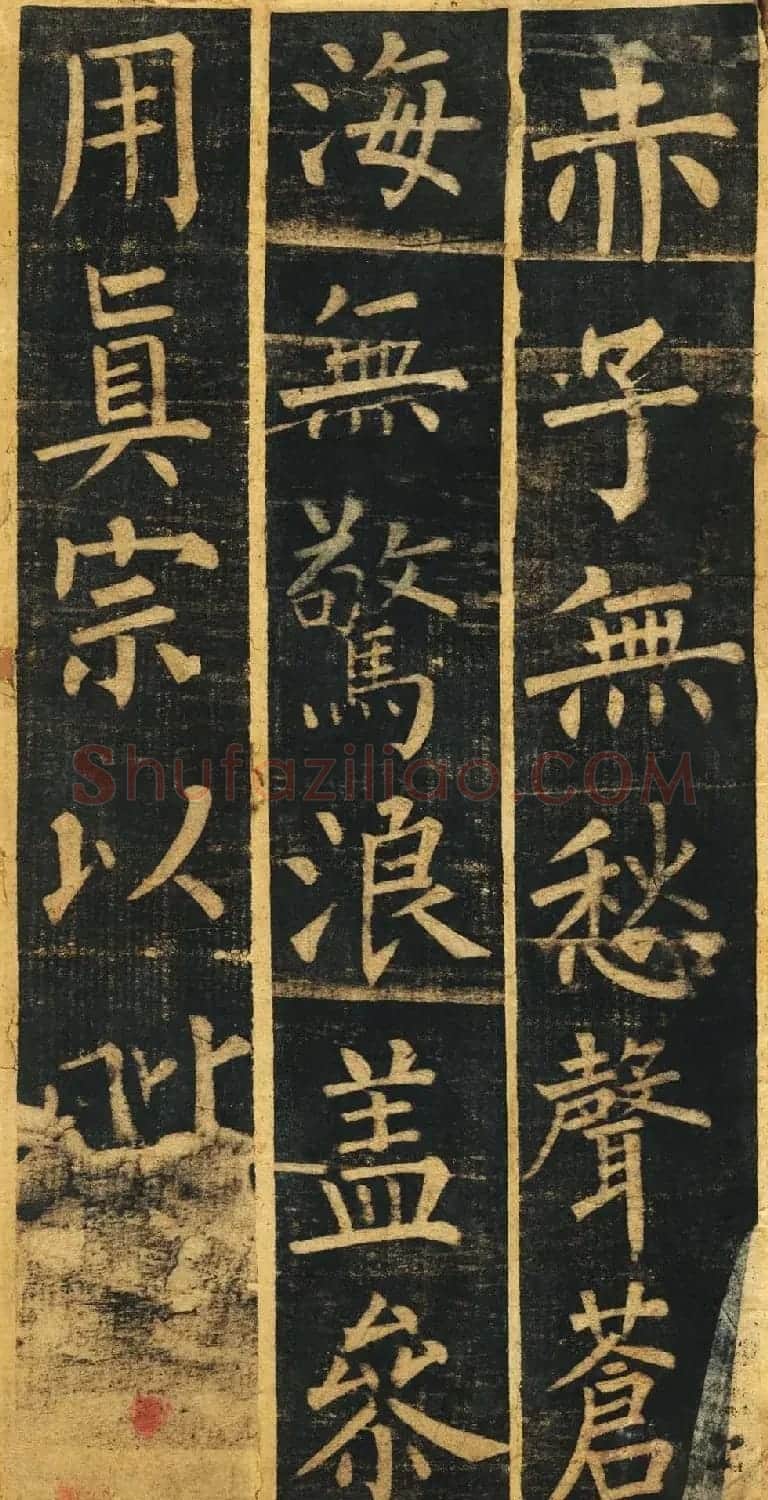 赤子無愁聲蒼
海無驚浪盖參
用眞宗以
Shufaziliao.COM